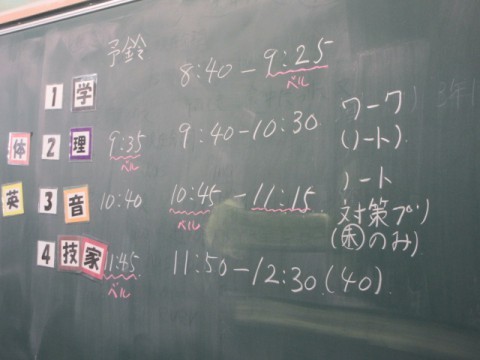 予鈴
1 学 8:40-9:25
ベル
体 2 理 9:35 9:40-10:30 ワーク
ベル (ノート)
英 3 音 10:40 10:45-11:15 ノート
ベル 対策プリ
(困のみ)
4 技家 11:45 11:50-12:30(40)
ベル